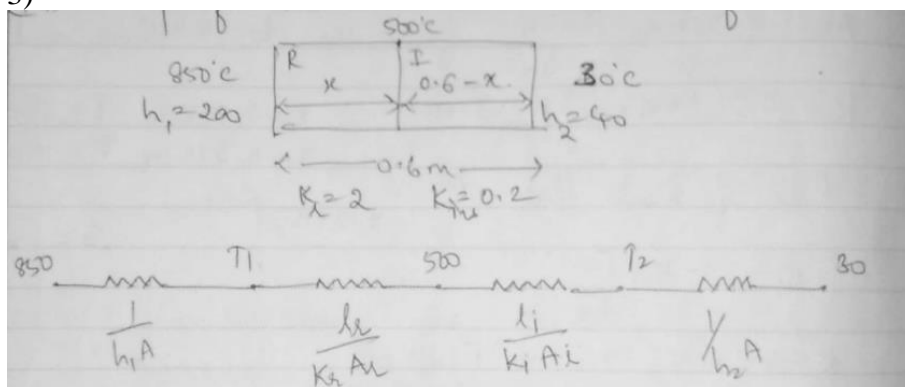 3)
500°C
850°C R I 30°C
x 0.6-x.
h₁=200 h₂=40
0.6m
Kr=2 Kins=0.2
850 T1 500 T2 30
1/h₁A lr/KrAr li/KiAi 1/h₂A